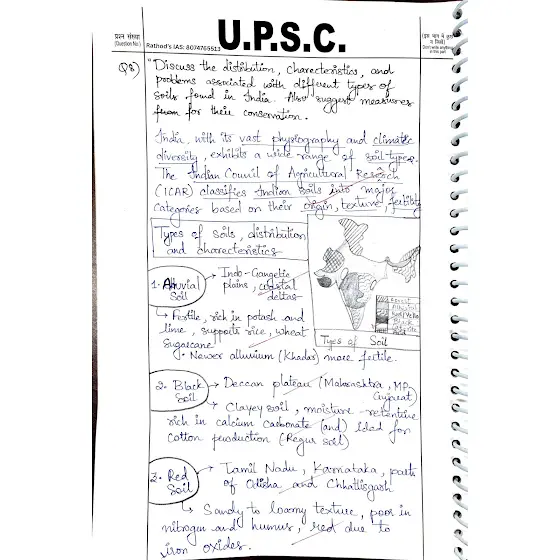 प्रश्न संख्या
(Question No.)
Rathod's IAS: 8074765513
U.P.S.C.
(इस भाग में कुछ न लिखें)
Don't write anything in this part
Q8) "Discuss the distribution, characteristics, and
problems associated with different types of
soils found in India. Also suggest measures
for their conservation.
India, with its vast physiography and climatic
diversity, exhibits a wide range of soil types.
The Indian Council of Agricultural Research
(ICAR) classifies Indian soils into major
categories based on their origin, texture, fertility
Types of soils, distribution
and characteristics
1. Alluvial Soil
→ Indo-Gangetic
plains, coastal
deltas
→ Fertile, rich in potash and
lime, supports rice, wheat
sugarcane
• Newer alluvium (Khadar) more fertile.
Forest
Alluvial
Black
Types of Soil
2. Black Soil
→ Deccan plateau (Maharashtra, MP,
Gujarat)
→ Clayey soil, moisture-retentive
rich in calcium carbonate (and) Ideal for
cotton production (Regur soil)
3. Red Soil
→ Tamil Nadu, Karnataka, parts
of Odisha and Chhattisgarh
→ Sandy to loamy texture, poor in
nitrogen and humus, red due to
iron oxides.